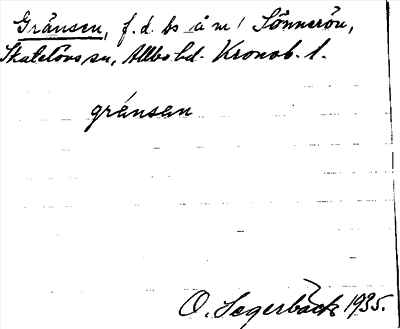 Gränsen, f.d. bs å m/ Sönnerön,
Skatelövs sn, Allbo hd. Kronob. l.
gränsen
O. Segerbäck 1935.